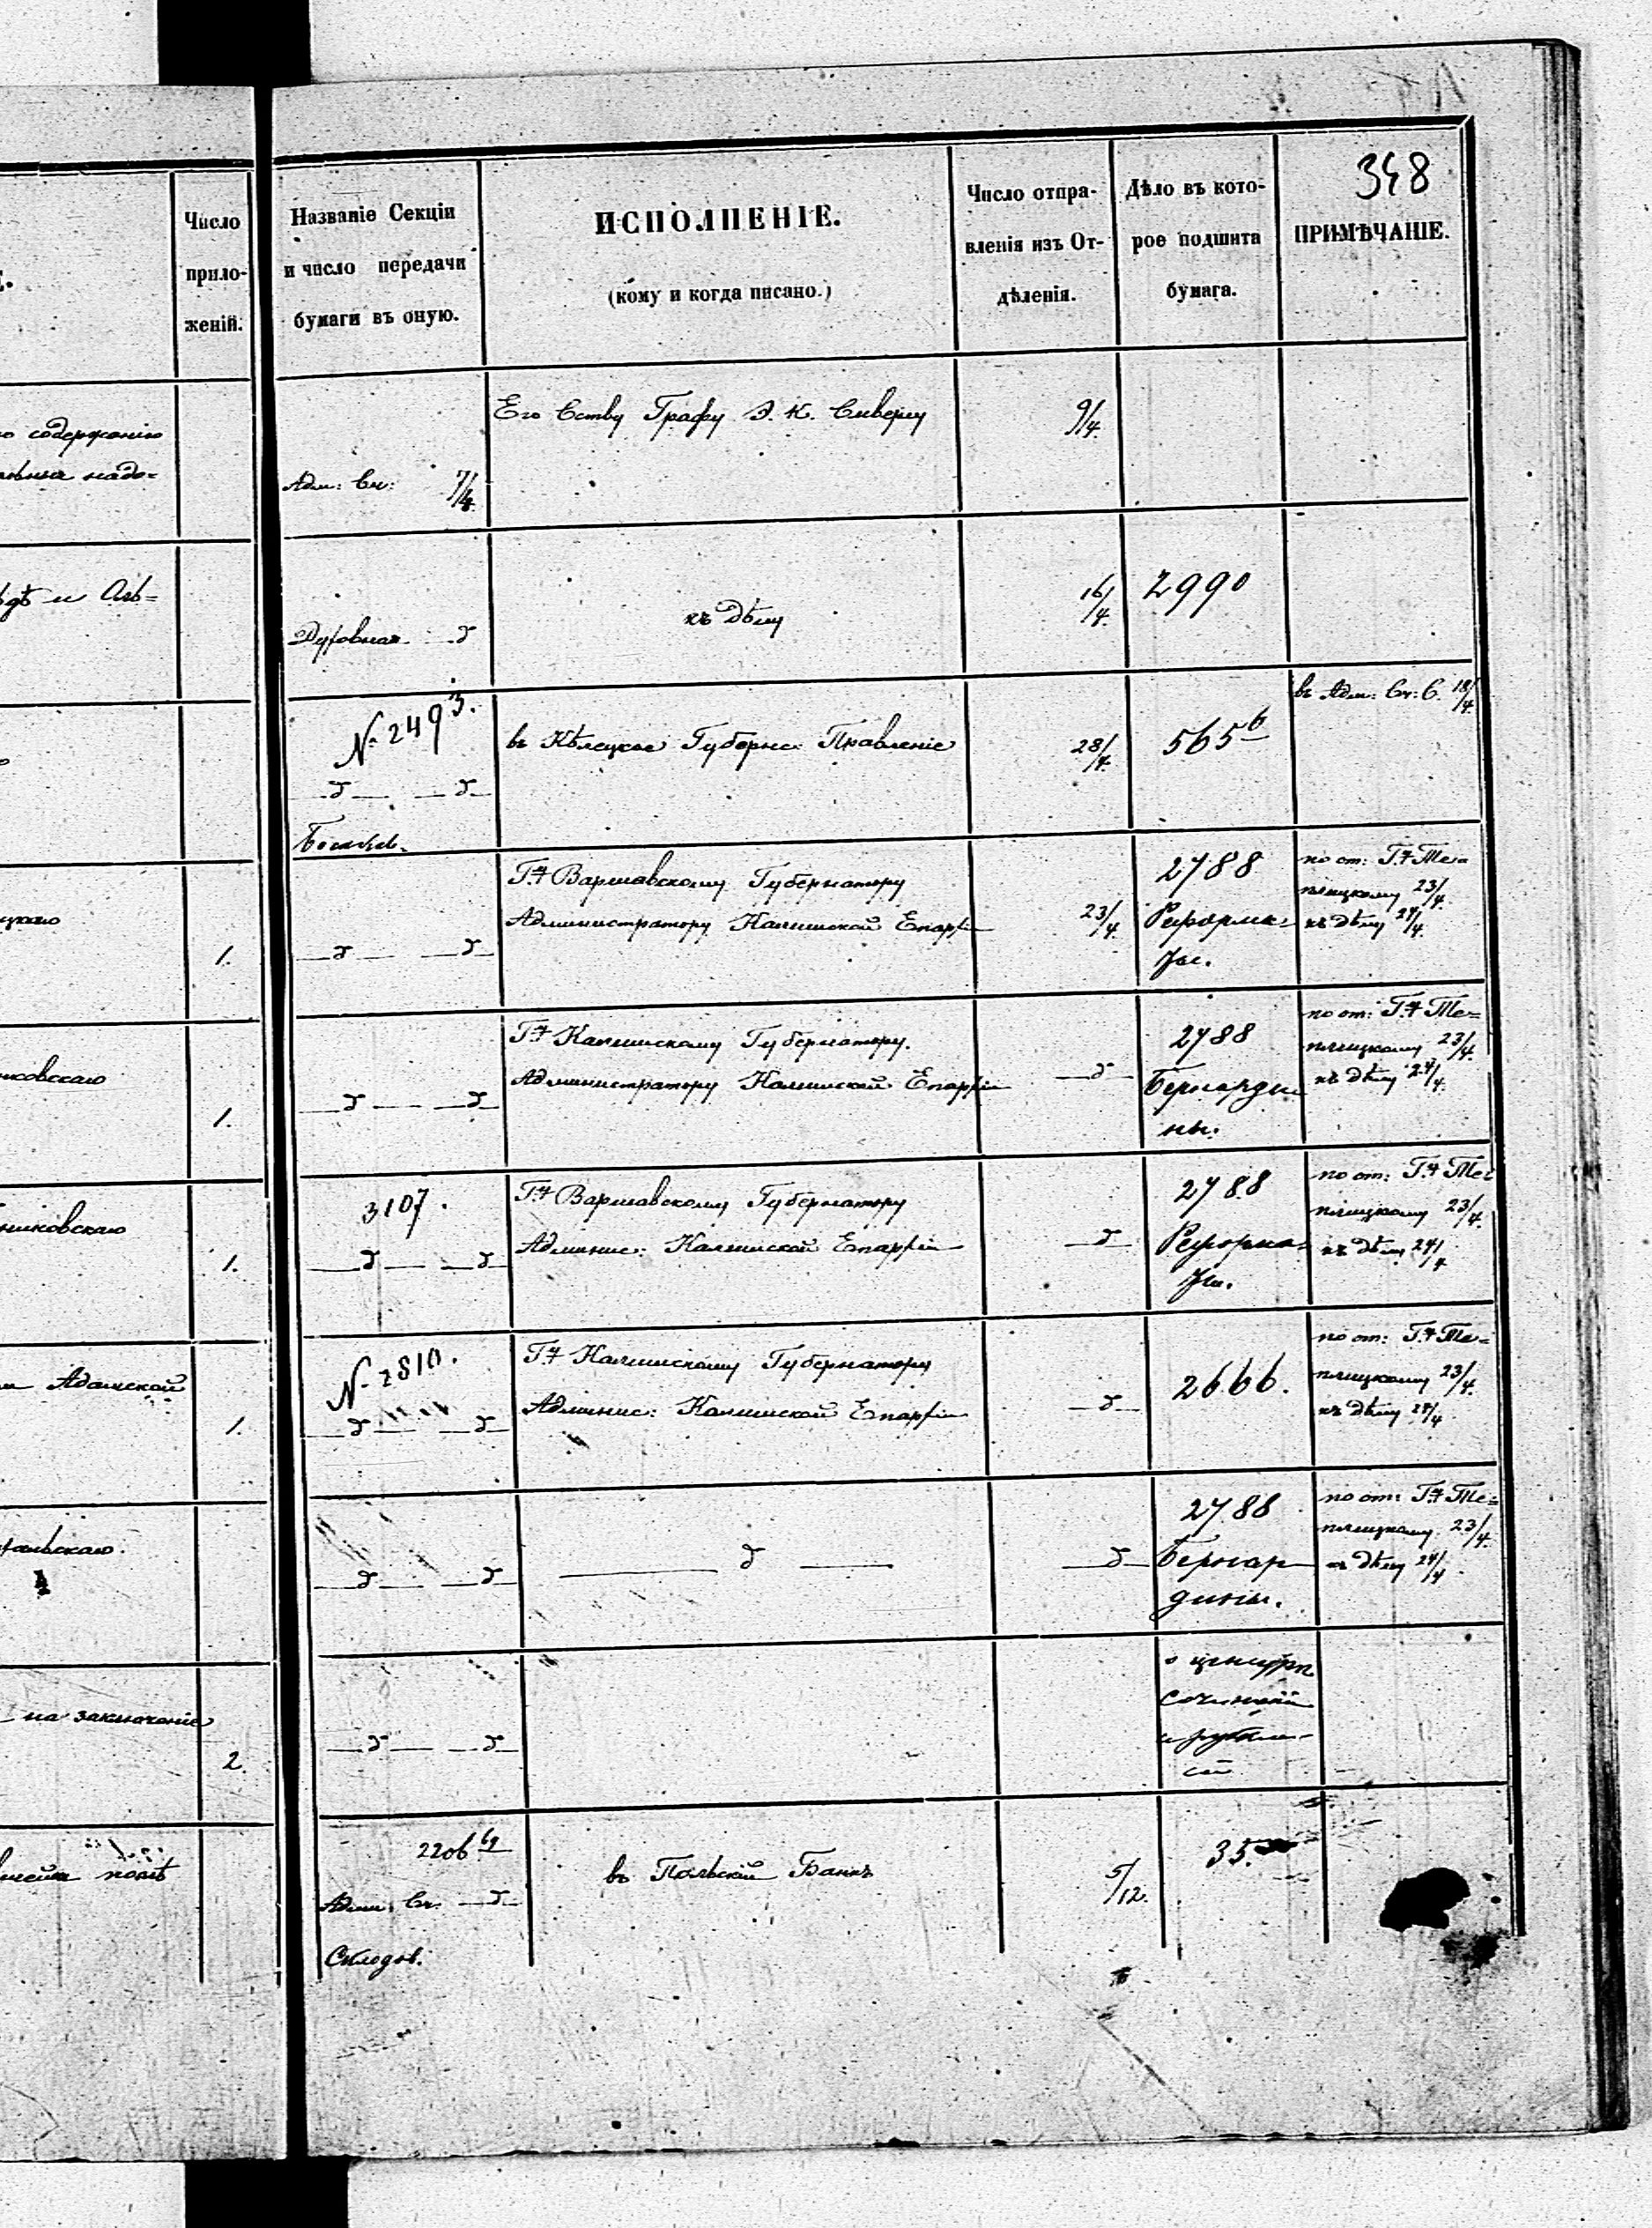 348
Число
прило-
женій.
Названіе Секціи
и число передачи
бумаги въ оную.
ИСПОЛНЕНІЕ.
(кому и когда писано.)
Число отпра-
вленія изъ От-
дѣленія.
Дѣло въ кото-
рое подшита
бумага.
ПРИМѢЧАНІЕ.
содержанію
надо=
Адм: Ск: 7/4.
Его Ству Графу Э. К. Сиверсу
9/4.
и Оль=
Духовная д
къ дѣлу
16/4.
2990
№ 2493.
д д
въ Кѣлецкое Губернс. Правленіе
28/4.
565 б
въ Адм: Ск: С. 18/4.
1.
д д
Гну Варшавскому Губернатору
Администратору Калишской Епархіи
23/4.
2788
Реформа=
ты.
по от: Гну Те=
плицкому 23/4.
къ дѣлу 24/4.
1.
д д
Гну Калишскому Губернатору.
Администратору Калишской Епархіи
д
2788
Бернарди
ны.
по от: Гну Те=
плицкому 23/4.
къ дѣлу 24/4.
1.
3107.
д д
Гну Варшавскому Губернатору
Админис: Калишской Епархіи
д
2788
Реформа=
ты.
по от: Гну Те
плицкому 23/4.
къ дѣлу 24/4
Адамской
1.
№ 2810.
д д
Гну Калишскому Губернатору
Админис: Калишской Епархіи
д
2666.
по от: Гну Те=
плицкому 23/4.
къ дѣлу 24/4.
д д
д
д
2788
Бернар
дины.
по от: Гну Те=
плицкому 23/4.
къ дѣлу 24/4.
на заключеніе
2.
д д
о цензурѣ
сочиненій
2206
Адми: Ск. д
Склодов.
въ Польскій Банкъ
5/12.
35.